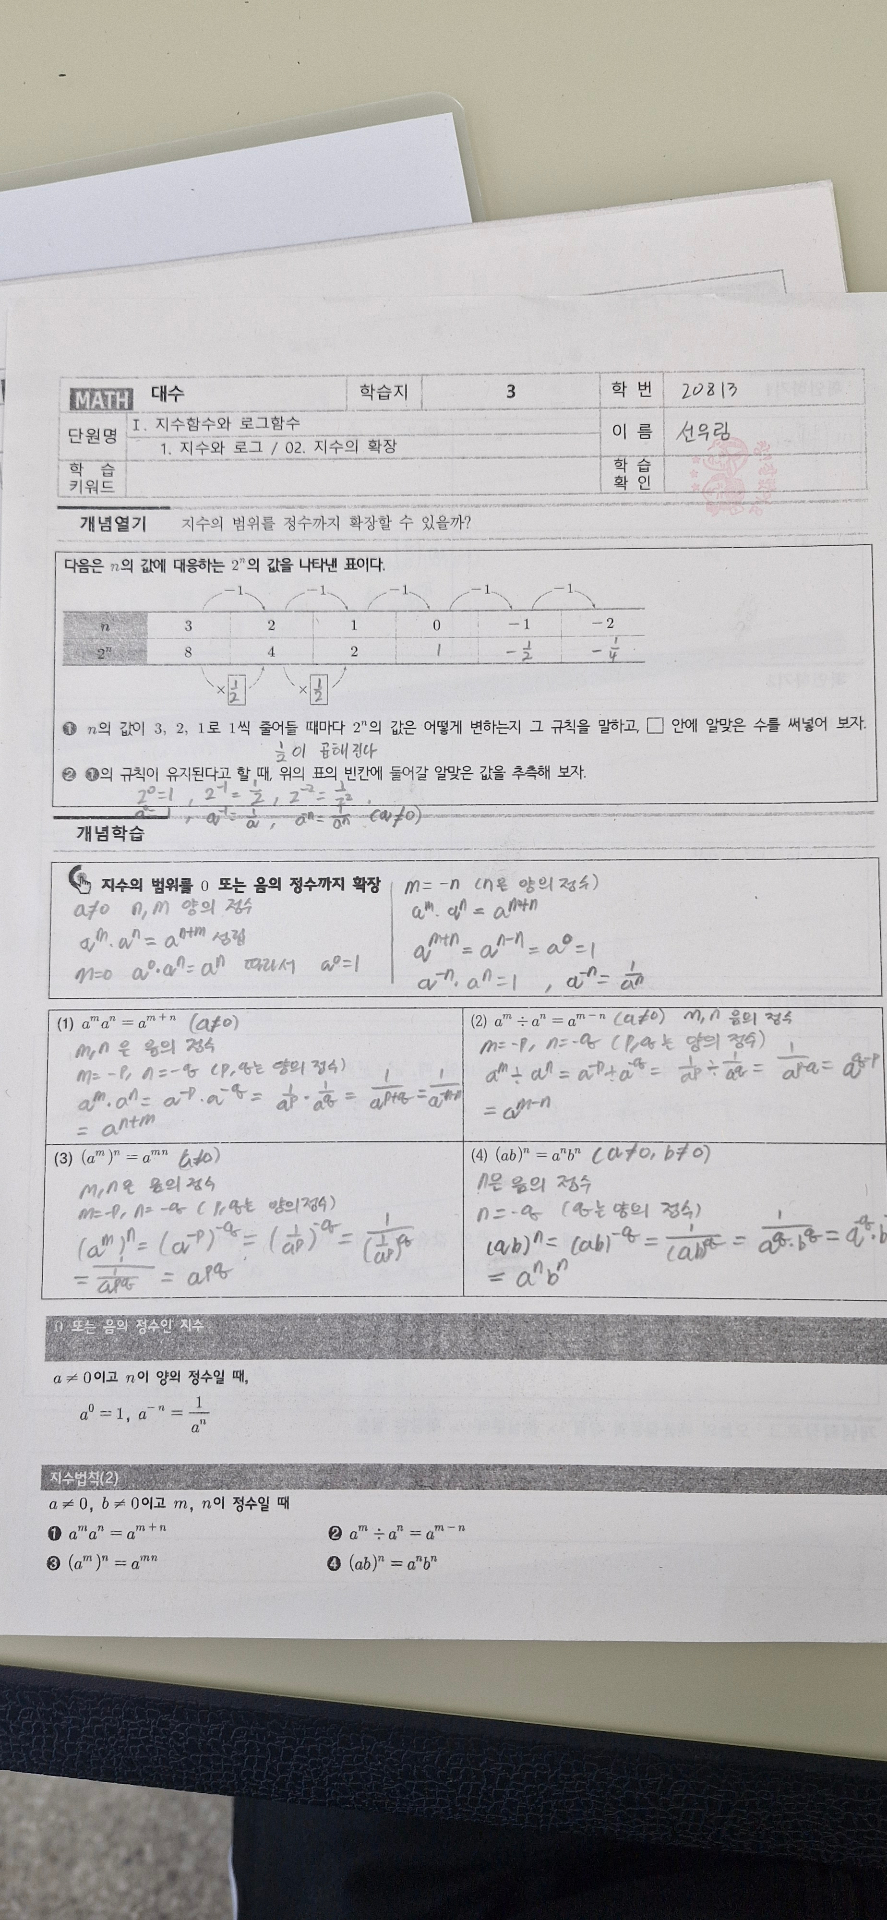 MATH 대수 학습지 3 학 번 20813
단원명 I. 지수함수와 로그함수 이 름 선우림
1. 지수와 로그 / 02. 지수의 확장
학 습 키워드 학 습 확 인
개념열기 지수의 범위를 정수까지 확장할 수 있을까?
다음은 n의 값에 대응하는 2ⁿ의 값을 나타낸 표이다.
-1 -1 -1 -1 -1
n 3 2 1 0 -1 -2
2ⁿ 8 4 2 1 -1/2 -1/4
×1/2 ×1/2
❶ n의 값이 3, 2, 1로 1씩 줄어들 때마다 2ⁿ의 값은 어떻게 변하는지 그 규칙을 말하고, □ 안에 알맞은 수를 써넣어 보자.
1/2이 곱해진다
❷ ❶의 규칙이 유지된다고 할 때, 위의 표의 빈칸에 들어갈 알맞은 값을 추측해 보자.
2⁰=1, 2⁻¹=1/2, 2⁻²=1/2²,
a⁰=1, a⁻¹=1/a, aⁿ=1/aⁿ (a≠0)
개념학습
지수의 범위를 0 또는 음의 정수까지 확장
a≠0 n,m 양의 정수
aᵐ·aⁿ=aⁿ⁺ᵐ 성립
m=0 a⁰·aⁿ=aⁿ 따라서 a⁰=1
m=-n (n은 양의 정수)
aᵐ·aⁿ=aᵐ⁺ⁿ
aᵐ⁺ⁿ=aⁿ⁻ⁿ=a⁰=1
a⁻ⁿ·aⁿ=1, a⁻ⁿ=1/aⁿ
(1) aᵐaⁿ=aᵐ⁺ⁿ (a≠0)
m,n은 음의 정수
m=-p, n=-q (p,q는 양의 정수)
aᵐ·aⁿ=a^-p·a^-q=1/a^p·1/a^q=1/a^(p+q)
=aⁿ⁺ᵐ
(2) aᵐ÷aⁿ=aᵐ⁻ⁿ (a≠0) m,n 음의 정수
m=-p, n=-q (p,q는 양의 정수)
aᵐ÷aⁿ=a^-p÷a^-q=1/a^p÷1/a^q=1/a^(p-q)=a^(q-p)
=aᵐ⁻ⁿ
(3) (aᵐ)ⁿ=aᵐⁿ (a≠0)
m,n은 음의 정수
m=-p, n=-q (p,q는 양의정수)
(aᵐ)ⁿ=(a^-p)^-q=(1/a^p)^-q=1/(1/a^p)^q
=1/(1/a^pq)=a^pq
(4) (ab)ⁿ=aⁿbⁿ (a≠0, b≠0)
n은 음의 정수
n=-q (q는 양의 정수)
(ab)ⁿ=(ab)^-q=1/(ab)^q=1/(a^q·b^q)=a^-q·b
=aⁿbⁿ
0 또는 음의 정수인 지수
a≠0이고 n이 양의 정수일 때,
a⁰=1, a⁻ⁿ=1/aⁿ
지수법칙(2)
a≠0, b≠0이고 m, n이 정수일 때
❶ aᵐaⁿ=aᵐ⁺ⁿ ❷ aᵐ÷aⁿ=aᵐ⁻ⁿ
❸ (aᵐ)ⁿ=aᵐⁿ ❹ (ab)ⁿ=aⁿbⁿ